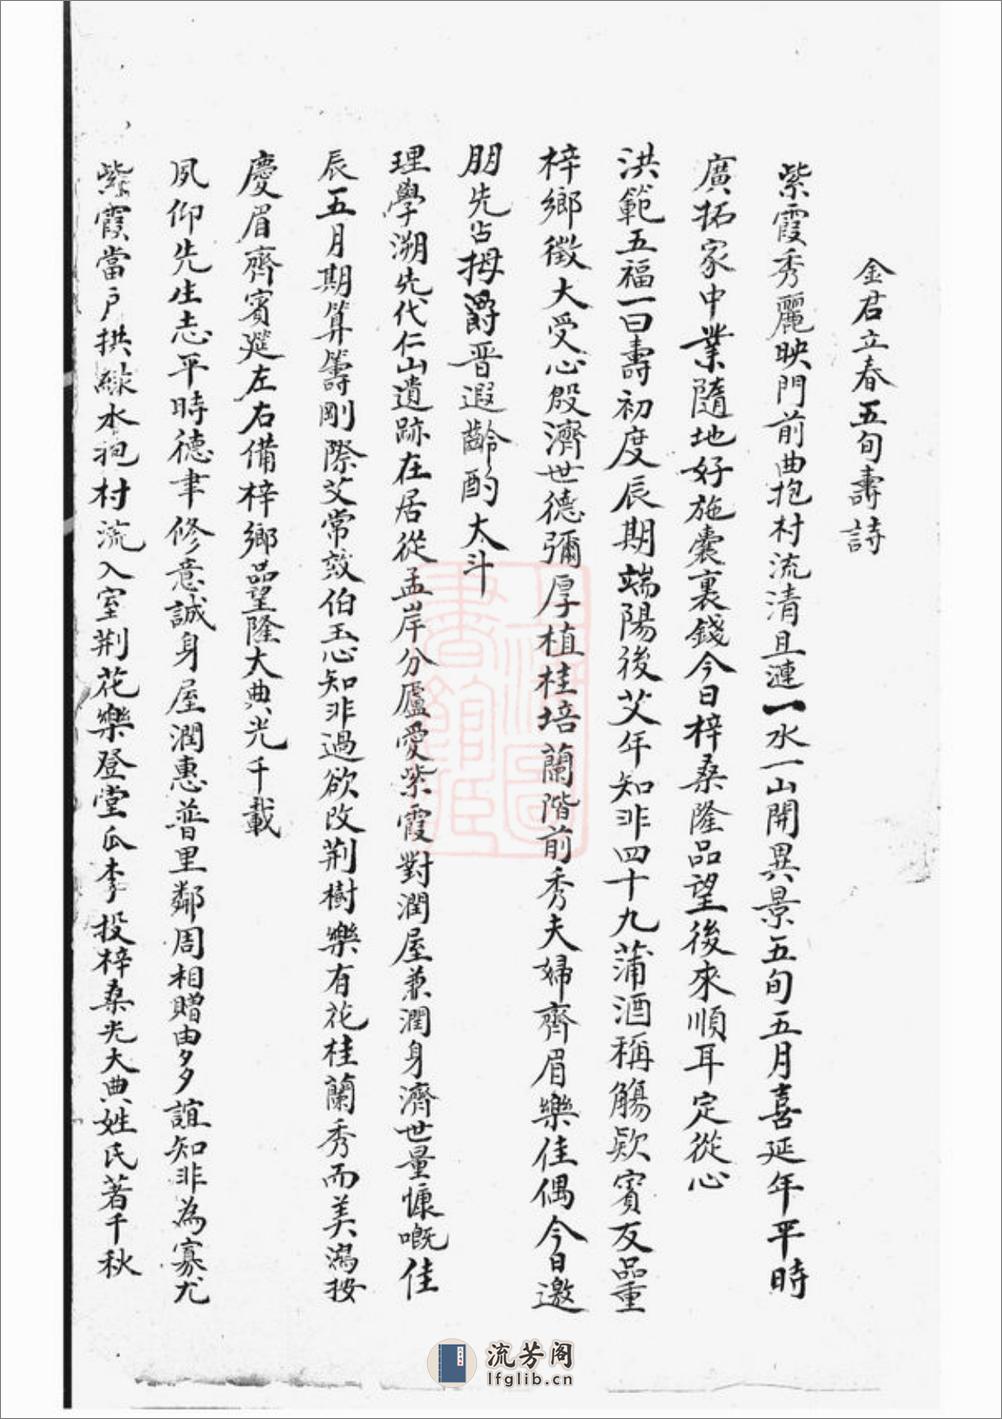 金君立春五旬壽詩
紫霞秀麗映門前曲抱村流清且漣一水一山開異景五旬五月喜延年平時
廣拓家中業隨地好施囊裏錢今日梓桑隆品望後來順耳定從心
洪範五福一曰壽初度辰期端陽後艾年知非四十九蒲酒稱觴欵賓友品重
梓鄉徵大受心殷濟世德彌厚植桂培蘭階前秀夫婦齊眉樂佳偶今日邀
朋先占拇爵晋遐齡酌大斗
理學溯先代仁山遺跡在居從孟岸分廬愛紫霞對潤屋兼潤身濟世量慷嘅佳
辰五月期算籌剛際艾常效伯玉心知非過欲改荆樹樂有花桂蘭秀而美鴻按
慶眉齊賓筵左右備梓鄉品望隆大典光千載
夙仰先生志平時德聿修意誠身屋潤惠普里鄰周相贈由多誼知非為寡尤
紫霞當戶拱綠水抱村流入室荆花樂登堂瓜李投梓桑光大典姓氏著千秋
流芳阁
lfglib.cn